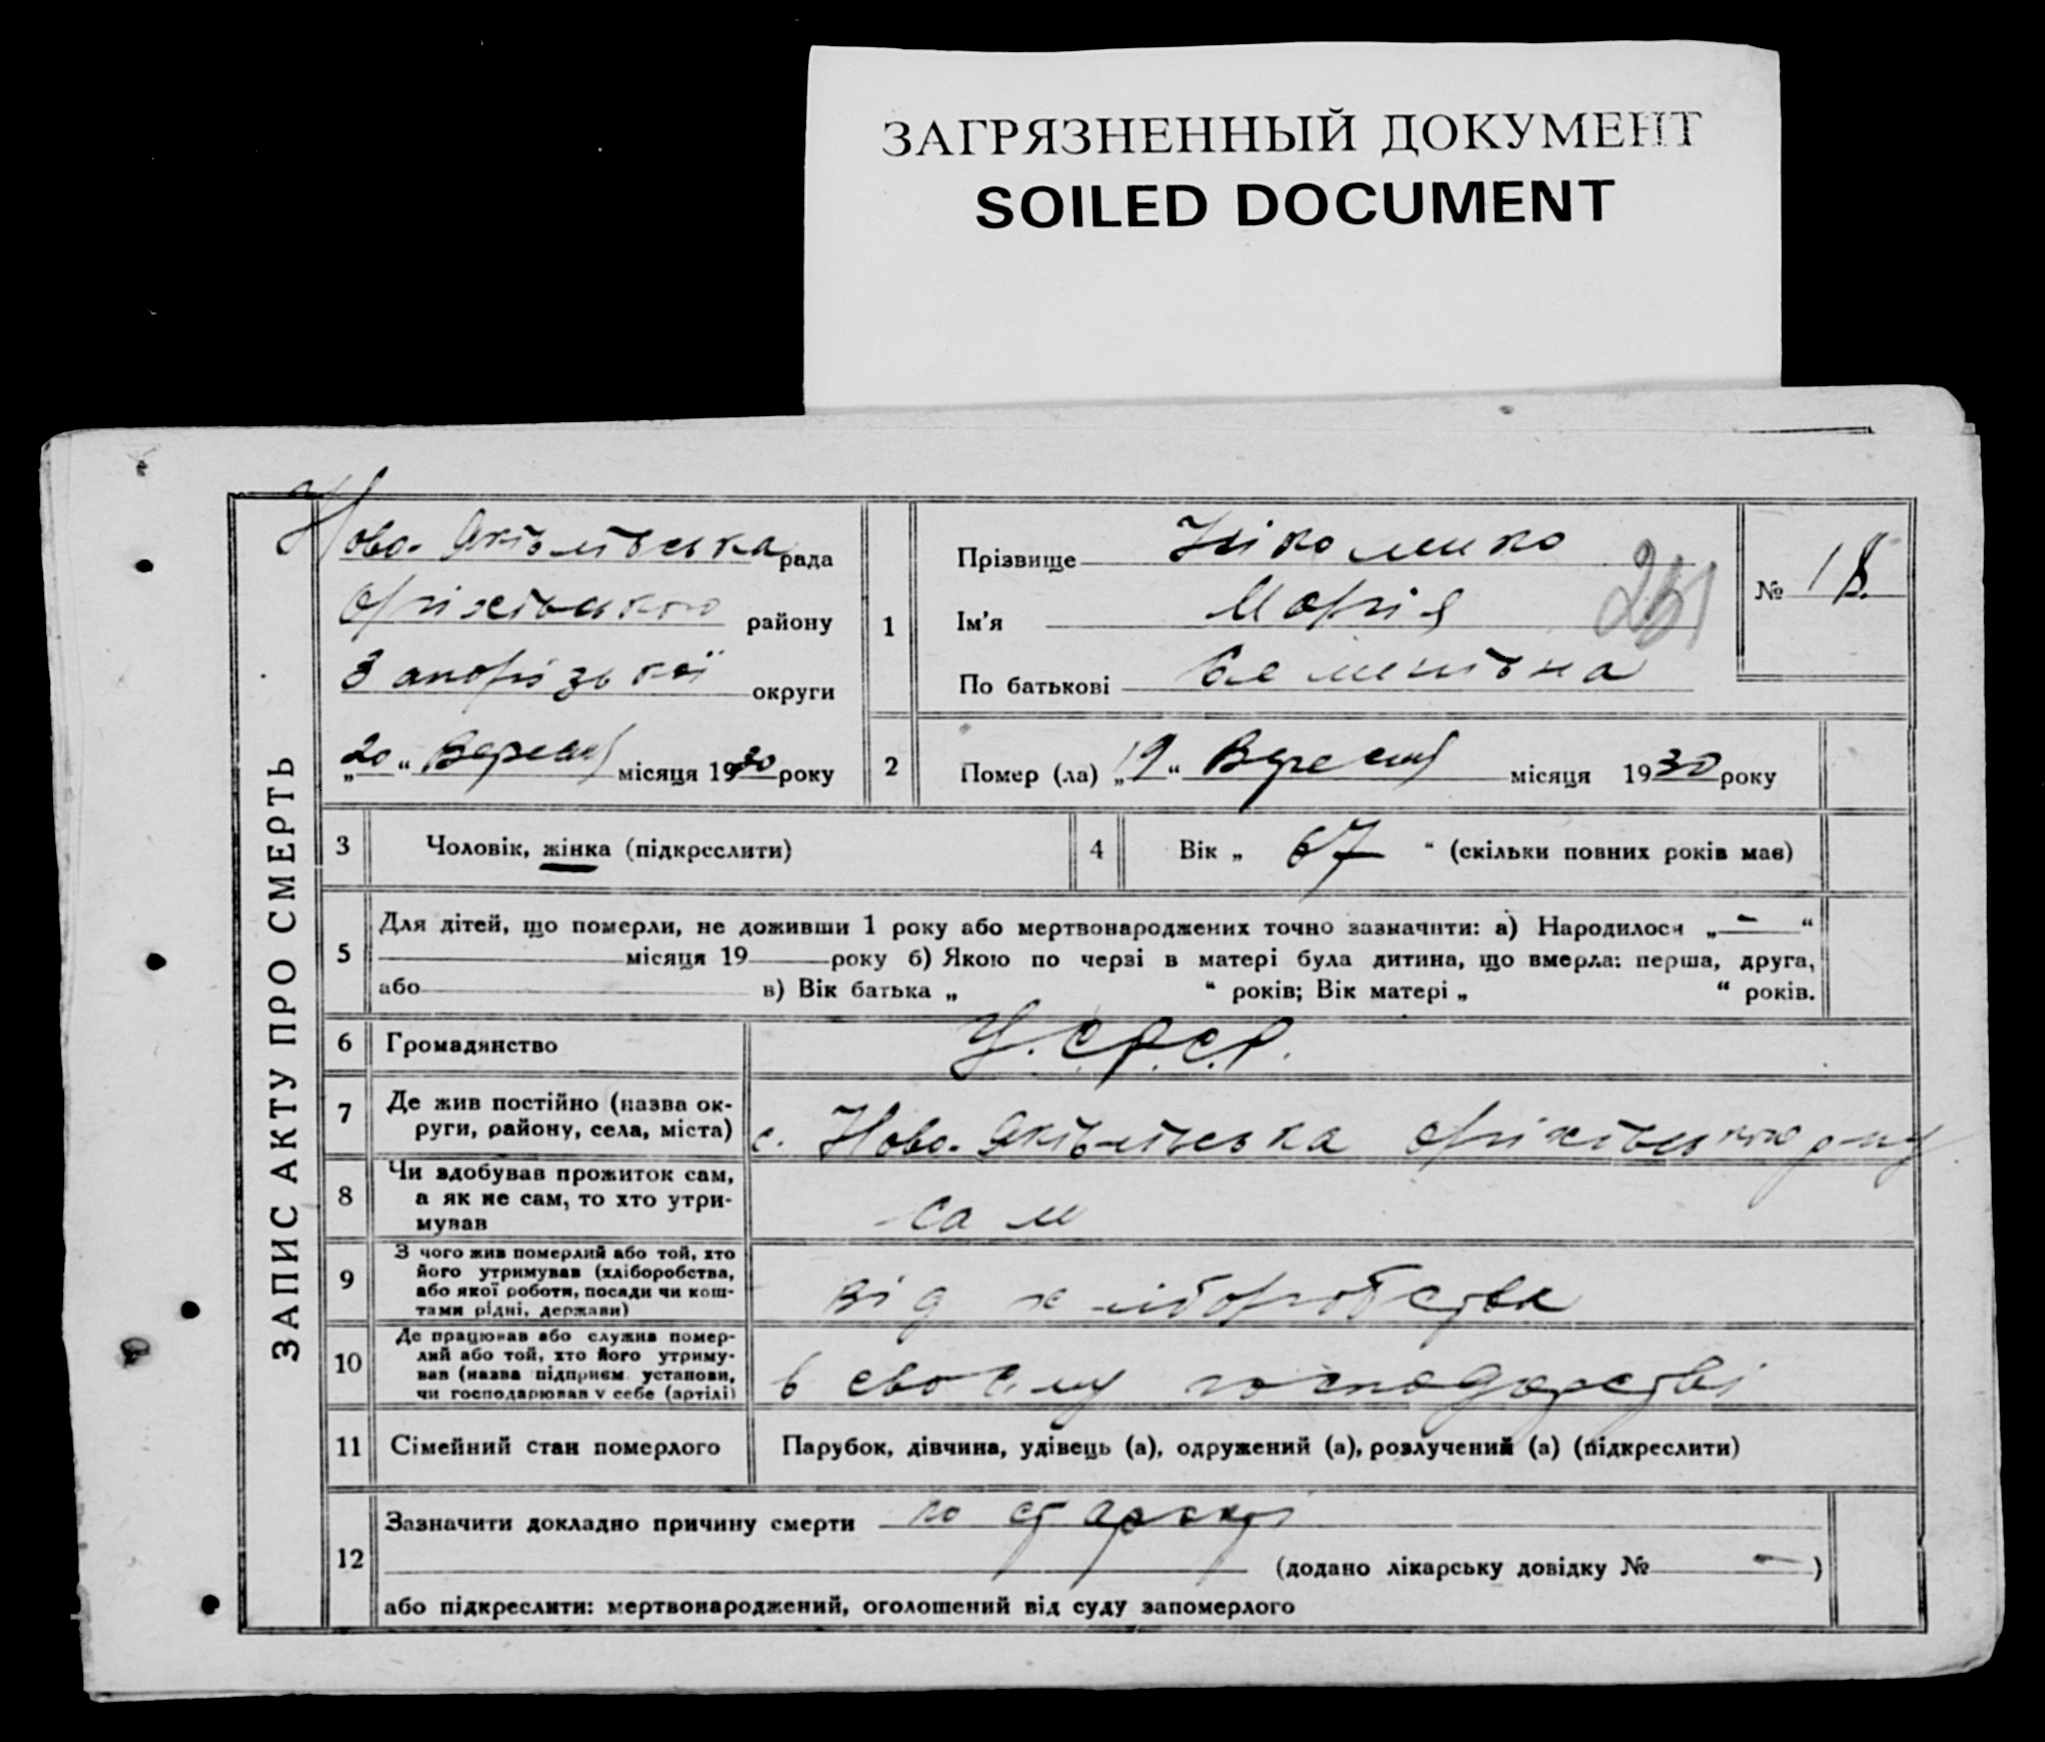 ЗАГРЯЗНЕННЫЙ ДОКУМЕНТ
SOILED DOCUMENT
ЗАПИС АКТУ ПРО СМЕРТЬ
Ново-Яківлівська рада
Оріхівського району
Запорізької округи
„20“ Вересня місяця 1930 року
1
Прізвище Ніколенко
Ім’я Марія
По батькові Семенівна
251
№ 18.
2
Помер (ла) „19“ Вересня місяця 1930 року
3 Чоловік, жінка (підкреслити)
4 Вік „ 67 “ (скільки повних років має)
5 Для дітей, що померли, не доживши 1 року або мертвонароджених точно зазначити: а) Народилося „ — “
місяця 19 року б) Якою по черзі в матері була дитина, що вмерла: перша, друга,
або в) Вік батька „ “ років; Вік матері „ “ років.
6 Громадянство У.С.Р.С.Р.
7 Де жив постійно (назва ок-
руги, району, села, міста)
с. Ново-Яківлівська Оріхівського р-ну
8 Чи здобував прожиток сам,
а як не сам, то хто утри-
мував
сам
9 З чого жив померлий або той, хто
його утримував (хліборобства,
або якої роботи, посади чи кош-
тами рідні, держави)
від хліборобства
10 Де працював або служив помер-
лий або той, хто його утриму-
вав (назва підприєм. установи,
чи господарював у себе (артілі)
в своєму господарстві
11 Сімейний стан померлого Парубок, дівчина, удівець (а), одружений (а), розлучений (а) (підкреслити)
12 Зазначити докладно причину смерти по старості
(додано лікарську довідку № — )
або підкреслити: мертвонароджений, оголошений від суду запомерлого